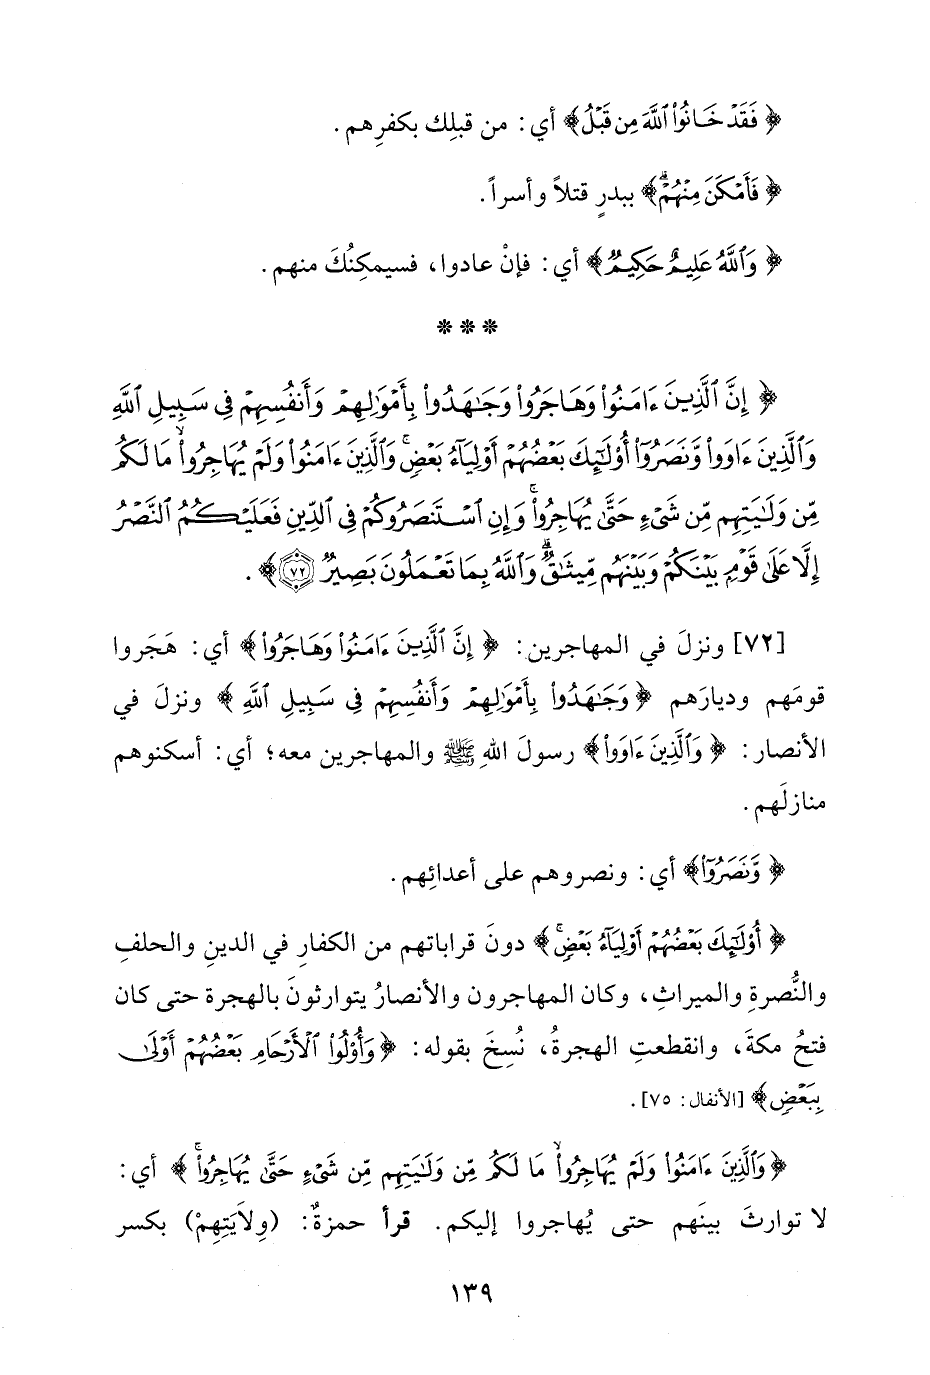 ﴿ فَقَدْ خَانُوا۟ ٱللَّهَ مِن قَبْلُ﴾ أي: من قبلِك بكفرِهم.
﴿ فَأَمْكَنَ مِنْهُمْ ۗ﴾ ببدرٍ قتلاً وأسراً.
﴿ وَٱللَّهُ عَلِيمٌ حَكِيمٌ﴾ أي: فإنْ عادوا، فسيمكِنُكَ منهم.
* * *
﴿ إِنَّ ٱلَّذِينَ ءَامَنُوا۟ وَهَاجَرُوا۟ وَجَـٰهَدُوا۟ بِأَمْوَٰلِهِمْ وَأَنفُسِهِمْ فِى سَبِيلِ ٱللَّهِ
وَٱلَّذِينَ ءَاوَوا۟ وَّنَصَرُوٓا۟ أُو۟لَـٰٓئِكَ بَعْضُهُمْ أَوْلِيَآءُ بَعْضٍ ۚ وَٱلَّذِينَ ءَامَنُوا۟ وَلَمْ يُهَاجِرُوا۟ مَا لَكُم
مِّن وَلَـٰيَتِهِم مِّن شَىْءٍ حَتَّىٰ يُهَاجِرُوا۟ ۚ وَإِنِ ٱسْتَنصَرُوكُمْ فِى ٱلدِّينِ فَعَلَيْكُمُ ٱلنَّصْرُ
إِلَّا عَلَىٰ قَوْمٍۭ بَيْنَكُمْ وَبَيْنَهُم مِّيثَـٰقٌ ۗ وَٱللَّهُ بِمَا تَعْمَلُونَ بَصِيرٌ ۝٧٢﴾.
[٧٢] ونزلَ في المهاجرين: ﴿ إِنَّ ٱلَّذِينَ ءَامَنُوا۟ وَهَاجَرُوا۟﴾ أي: هَجَروا
قومَهم وديارَهم ﴿ وَجَـٰهَدُوا۟ بِأَمْوَٰلِهِمْ وَأَنفُسِهِمْ فِى سَبِيلِ ٱللَّهِ ﴾ ونزلَ في
الأنصار: ﴿ وَٱلَّذِينَ ءَاوَوا۟﴾ رسولَ اللهِ ﷺ والمهاجرين معه؛ أي: أسكنوهم
منازلَهم.
﴿ وَّنَصَرُوٓا۟﴾ أي: ونصروهم على أعدائِهم.
﴿ أُو۟لَـٰٓئِكَ بَعْضُهُمْ أَوْلِيَآءُ بَعْضٍ ۚ﴾ دونَ قراباتهم من الكفارِ في الدينِ والحلفِ
والنُّصرةِ والميراثِ، وكان المهاجرون والأنصارُ يتوارثونَ بالهجرة حتى كان
فتحُ مكةَ، وانقطعتِ الهجرةُ، نُسِخَ بقوله: ﴿ وَأُو۟لُوا۟ ٱلْأَرْحَامِ بَعْضُهُمْ أَوْلَىٰ
بِبَعْضٍ﴾ [الأنفال: ٧٥].
﴿ وَٱلَّذِينَ ءَامَنُوا۟ وَلَمْ يُهَاجِرُوا۟ مَا لَكُم مِّن وَلَـٰيَتِهِم مِّن شَىْءٍ حَتَّىٰ يُهَاجِرُوا۟ ۚ ﴾ أي:
لا توارثَ بينَهم حتى يُهاجروا إليكم. قرأ حمزةُ: (وِلاَيَتِهِمْ) بكسر
١٣٩